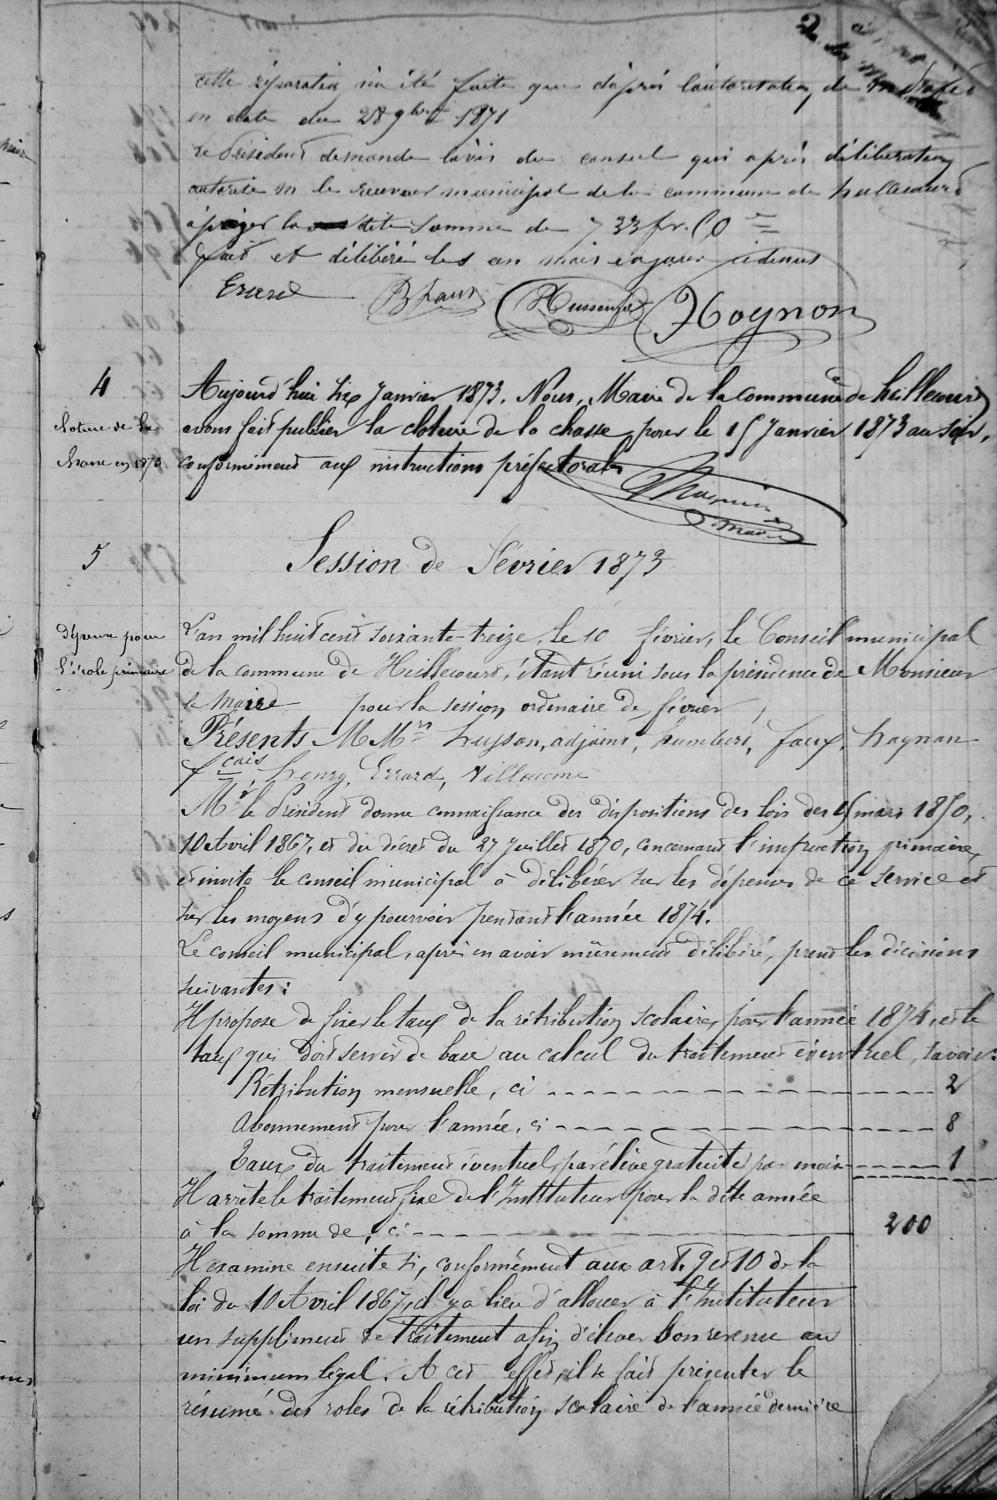 2
cette réparation n'a été faite que d'après l'autorisation de
en date du 28 9bre 1871
Le Président demande l'avis du conseil qui après délibération
autorise M le receveur municipal de la commune de huilliecourt
à payer la dite somme de 733 fr. 50
fait et délibéré les an mois et jour ci dessus
Erard Hoynon
4
Aujourd'hui dix Janvier 1873. Nous, Maire de la commune de huilliecourt
cloture de la
avons fait publier la cloture de la chasse pour le 15 Janvier 1873 au soir,
chasse en 1873
conformément aux instructions préfectorales
maire
5
Session de Février 1873
dépense pour
L'an mil huit cent soixante-treize, le 10 février, le Conseil municipal
l'école primaire
de la commune de Huilliecourt, étant réuni sous la présidence de Monsieur
le Maire pour la session ordinaire de février,
Présents MMrs husson, adjoint, humbert, faux, hognon
fcois, henry, Errard, Villaume
Mr le Président donne connaissance des dispositions des lois des 15 mars 1850,
10 Avril 1867, et du décret du 27 Juillet 1870, concernant l'instruction primaire,
et invite le conseil municipal à délibérer sur les dépenses de ce service et
sur les moyens d'y pourvoir pendant l'année 1874.
Le conseil municipal, après en avoir mûrement délibéré, prend les décisions
suivantes :
Il propose de fixer le taux de la rétribution scolaire, pour l'année 1874, et le
taux qui doit servir de base au calcul du traitement éventuel, savoir :
Rétribution mensuelle, ci - - - - - - - - - - - - - - - - 2
Abonnement pour l'année, ci - - - - - - - - - - - - - - - 8
Taux du traitement éventuel, par élève gratuite par mois - - - - - 1
Il arrête le traitement fixe de l'Instituteur pour la dite année
à la somme de, ci - - - - - - - - - - - - - - - - 200
Il examine ensuite si, conformément aux art. 9 et 10 de la
loi du 10 Avril 1867, il y a lieu d'allouer à l'Instituteur
un supplément de traitement afin d'élever son revenu au
minimum légal. A cet effet, il se fait présenter le
résumé des roles de la rétribution scolaire de l'année dernière